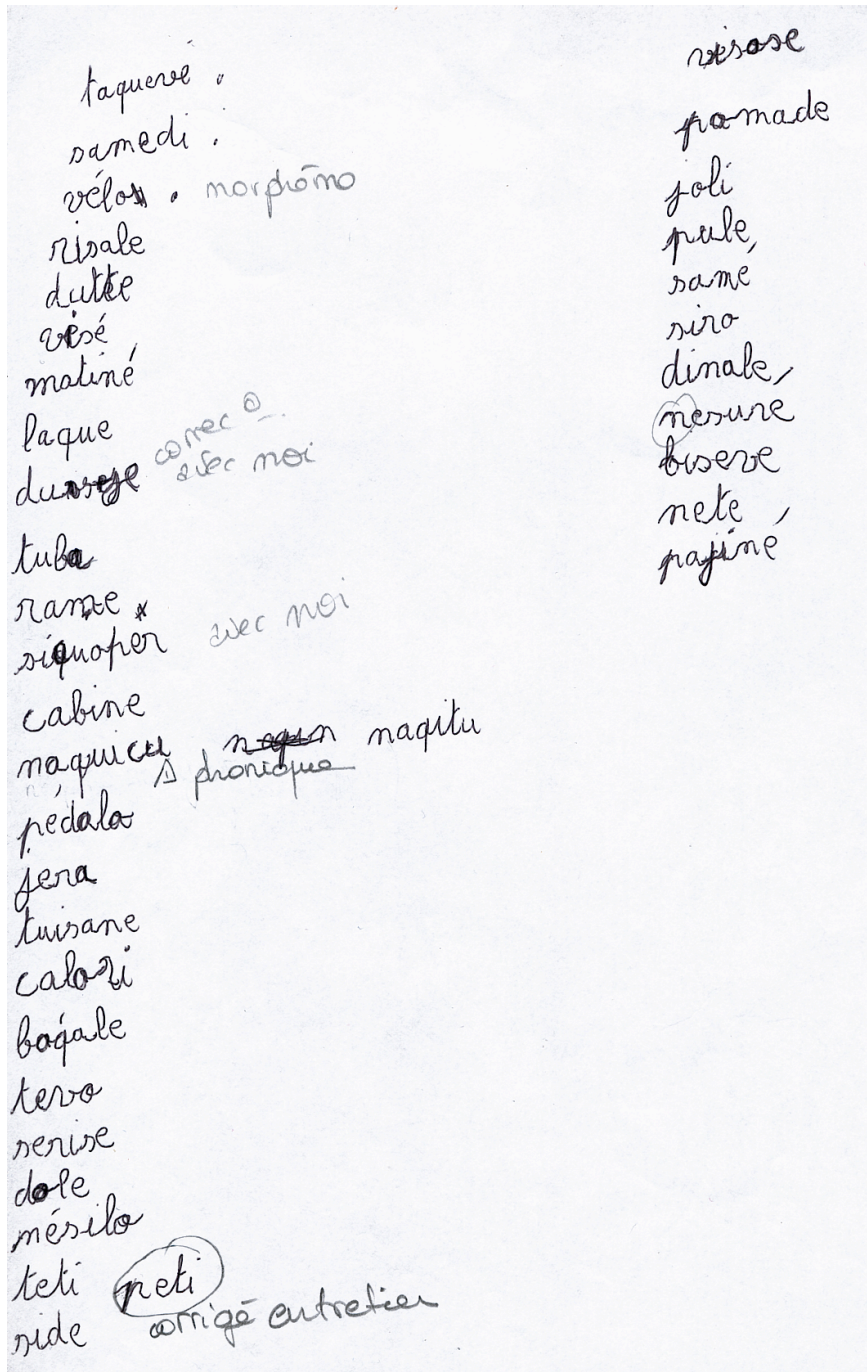 taqueve .
samedi .
vélos . morphémo
risale
dutte
visé
matiné
laque
correc°
avec moi
tuba
rame
siquoper avec moi
cabine
naquicu naqitu
Δ phonique
pédalo
fera
tuisane
calori
bagale
tevo
serise
dole
mésilo
teti peti
corrigé entretien
side
visose
pomade
joli
pule
samé
siro
dinale
nesure
biseve
nete
pajiné